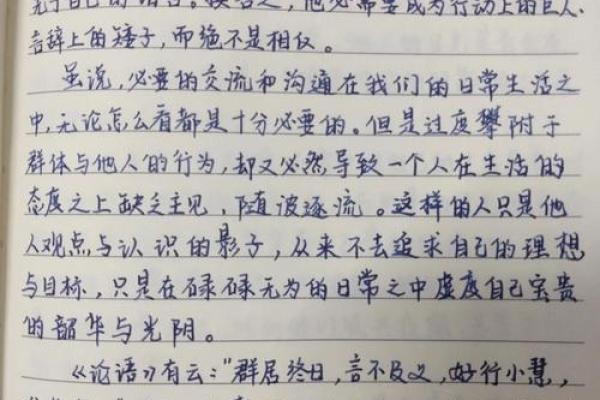 他必需要成为行动上的巨人、
言辞上的矮子，而绝不是相仪。
虽说，必要的交流和沟通在我们的日常生活之
中，无论怎么看都是十分必要的。但是过度攀附于
群体与他人的行为，却又必然导致一个人在生活的
态度之上缺乏主见，随波逐流。这样的人只是他
人观点与认识的影子，从来不去追求自己的理想
与目标，只是在碌碌无为的日常之中虚度自己宝贵
的韶华与光阴。
《论语》有云：“群居终日，言不及义，好行小慧，